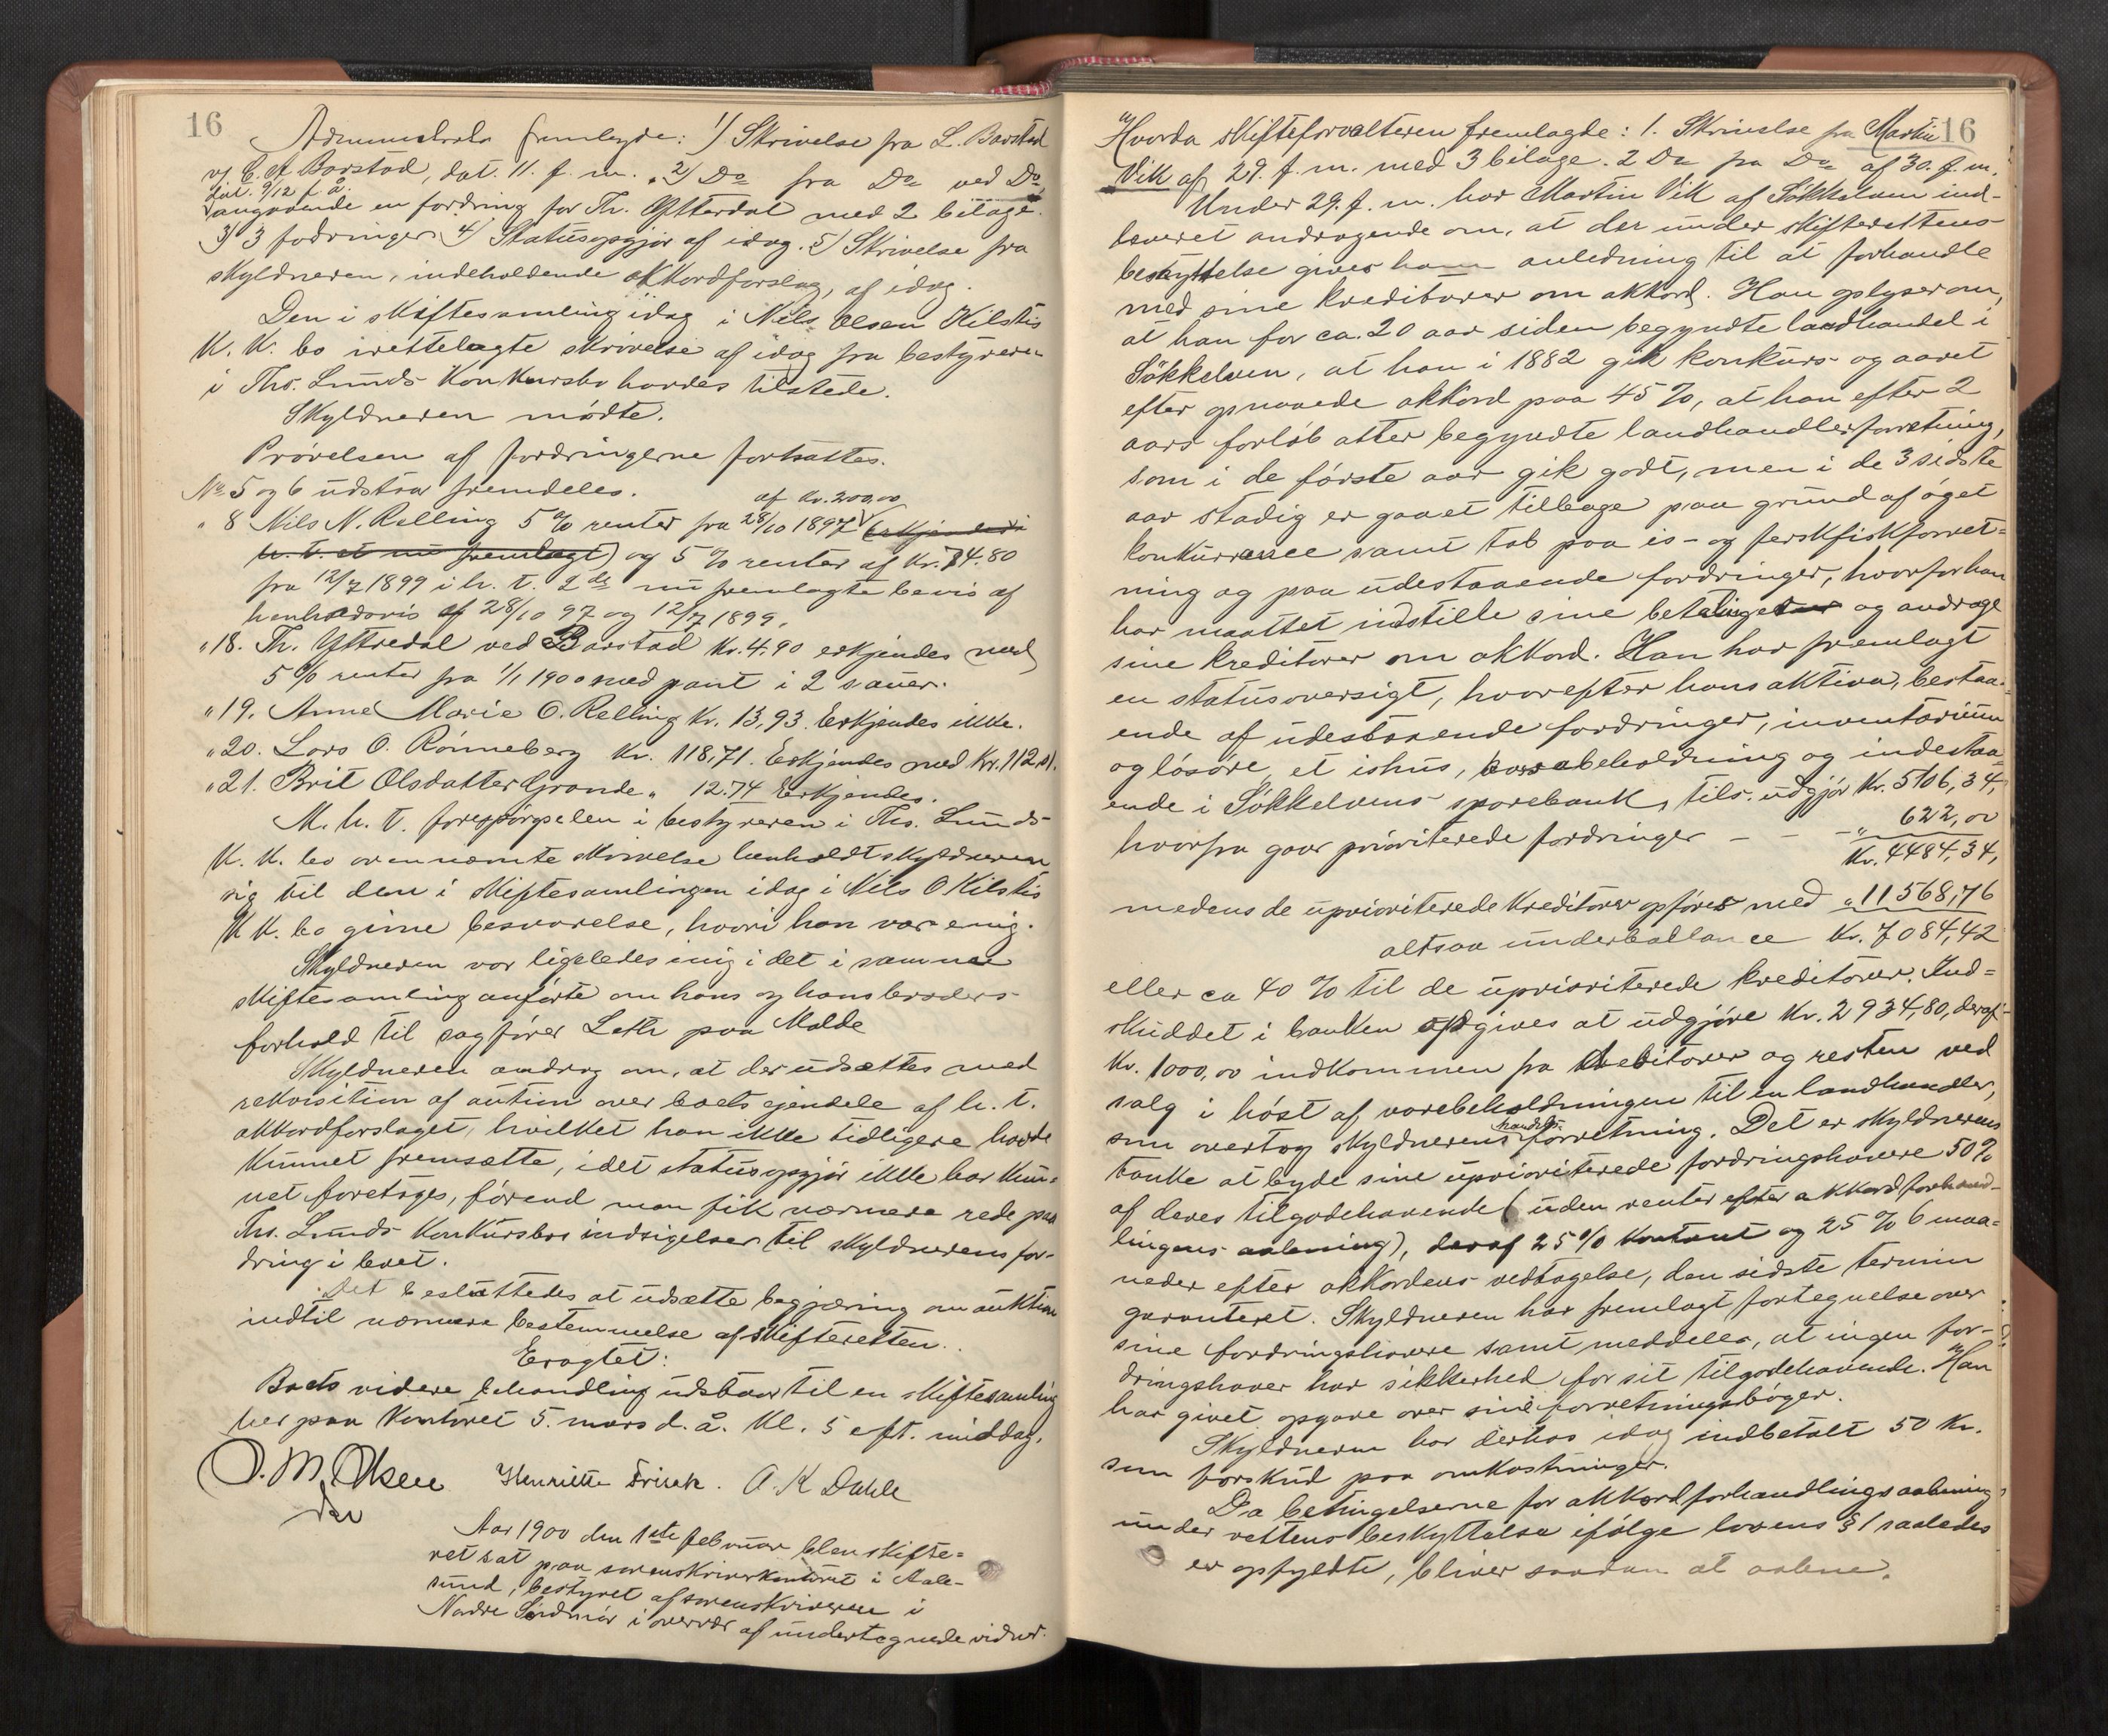 16
Administrator fremlagde: 1) Skrivelse fra L. Barstad
v/ C. A. Barstad, dat. 11. f. m. 2) Do fra Do ved Do,
dat. 9/12 f. å.
angaaende en fordring for Th. Ytterdal med 2 bilage.
3) 3 fodringer 4) Statusopgjør af idag. 5) Skrivelse fra
skyldneren, indeholdende akkordforslag, af idag.
Den i skiftesamling idag i Nils Olsen Kilstis
K. K. bo irettelagte skrivelse af idag fra bestyreren
i Ths. Lunds Konkursbo havdes tilstede.
Skyldneren mødte.
Prøvelsen af fordringerne fortsattes.
No 5 og 6 udstaar fremdeles.
af Kr. 200,00
" 8 Nils N. Relling 5 % renter fra 28/10 1897 (erkjendes i
h. t. et nu fremlagt) og 5 % renter af Kr. 74.80
fra 12/7 1899 i h. t. 2de nu fremlagte bevis af
henholdsvis af 28/10 97 og 12/7 1899.
" 18. Th. Yttredal ved Barstad Kr. 4.90 erkjendes med
5 % renter fra 1/1 1900 med pant i 2 sauer.
" 19. Anne Marie O. Relling Kr. 13,93. Erkjendes ikke.
" 20. Lars O. Rønneberg Kr. 118,71. Erkjendes med Kr. 112,
" 21. Brit Olsdatter Grande " 12.74 Erkjendes.
M. h. t. forespørgselen i bestyreren i Ths. Lunds
K. K. bo ovennævnte skrivelse henholdt skyldneren
sig til den i skiftesamlingen idag i Nils O Kilstis
K K. bo givne besvarelse, hvori han var enig.
Skyldneren var ligeledes enig i det i samme
skiftesamling anførte om hans og hans broders
forhold til sagfører Leth paa Molde
Skyldneren androg om, at der udsættes med
rekvisition af aution over boets ejendele af h. t.
akkordforslaget, hvilket han ikke tidligere havde
kunnet fremsætte, idet statusopgjør ikke har kun-
net foretages, førend man fik nærmere rede paa
Ths. Lunds Konkursbos indsigelser til skyldnerens for-
dring i boet.
Det besluttedes at udsætte begjæring om auktion
indtil nærmere bestemmelse af skifteretten.
Eragtet:
Boets videre behandling udstaar til en skiftesamling
her paa Kontoret 5. mars d. å. kl. 5 eft. middag.
O. M. Olsen Henriette Frisak. A. K Dahle
Aar 1900 den 1ste februar blev skifte-
ret sat paa sorenskriverkontoret i Aale-
sund, bestyret af sorenskriveren i
Nordre Søndmør i overvær af undertegnede vidner.
16
Hvorda skifteforvalteren fremlagde: 1. Skrivelse fra Martin
Vik af 29. f. m. med 3 bilage. 2 Do fra Do af 30. f. m.
Under 29. f. m. har Martin Vik af Søkkelven ind-
leveret andragende om, at der under skifterettens
beskyttelse gives ham anledning til at forhandle
med sine kreditorer om akkord. Han oplyser om,
at han for ca. 20 aar siden begyndte landhandel i
Søkkelven, at han i 1882 gik konkurs og aaret
efter opnaaede akkord paa 45 %, at han efter 2
aars forløb atter begyndte landhandlerforretning,
som i de første aar gik godt, men i de 3 sidste
aar stadig er gaaet tilbage paa grund af øget
konkurrance samt tab paa is- og ferskfiskforret-
ning og paa udestaaende fordringer, hvorfor han
har maattet indstille sine betalinger og andrage
sine kreditorer om akkord. Han har fremlagt
en statusoversigt, hvorefter hans aktiva, bestaa-
ende af udestaaende fordringer, inventarium
og løsøre, et ishus, varebeholdning og indestaa-
ende i Søkkelvens sparebank, tils. udgjør Kr. 5106,34,
hvorfra gaar prioriterede fordringer - - - " 622,00
Kr. 4484,34,
medens de uprioriterede kreditorer opføres med " 11568,76
altsaa underballance Kr. 7084,42
eller ca 40 % til de uprioriterede kreditorer. Ind-
skuddet i banken opgives at udgjøre Kr. 2934,80, deraf
Kr. 1000,00 indkommen fra debitorer og resten ved
salg i høst af varebeholdningen til en landhandler,
handels
som overtog skyldnerens forretning. Det er skyldnerens
tanke at byde sine uprioriterede fordringshavere 50 %
af deres tilgodehavende (uden renter efter akkordforhand-
lingens aabning), deraf 25 % kontant og 25 % 6 maa-
neder efter akkordens vedtagelse, den sidste termin
garanteret. Skyldneren har fremlagt fortegnelse over
sine fordringshavere samt meddeler, at ingen for-
dringshaver har sikkerhed for sit tilgodehavende. Han
har givet opgave over sine forretningsbøger.
Skyldneren har derhos idag indbetalt 50 Kr.
som forskud paa omkostninger.
Da betingelserne for akkordforhandlings aabning
under rettens beskyttelse ifølge lovens § 1 saaledes
er opfyldte, bliver saadan at aabne.